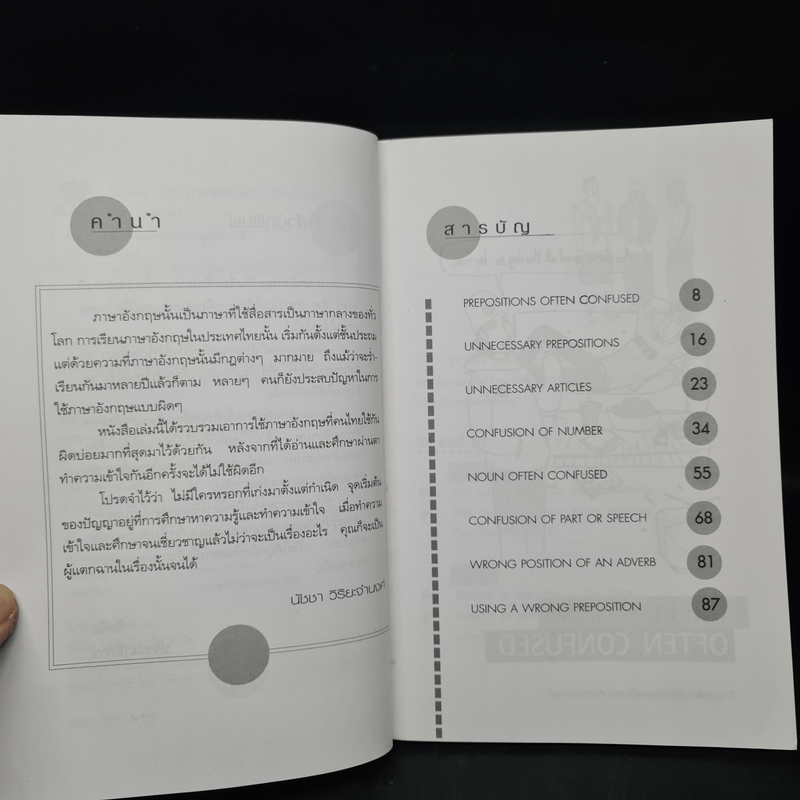 คำนำ
ภาษาอังกฤษนั้นเป็นภาษาที่ใช้สื่อสารเป็นภาษากลางของทั่ว
โลก การเรียนภาษาอังกฤษในประเทศไทยนั้น เริ่มกันตั้งแต่ชั้นประถม
แต่ด้วยความที่ภาษาอังกฤษนั้นมีกฎต่างๆ มากมาย ถึงแม้ว่าจะร่ำ-
เรียนกันมาหลายปีแล้วก็ตาม หลายๆ คนก็ยังประสบปัญหาในการ
ใช้ภาษาอังกฤษแบบผิดๆ
หนังสือเล่มนี้ได้รวบรวมเอาการใช้ภาษาอังกฤษที่คนไทยใช้กัน
ผิดบ่อยมากที่สุดมาไว้ด้วยกัน หลังจากที่ได้อ่านและศึกษาผ่านตา
ทำความเข้าใจกันอีกครั้งจะได้ไม่ใช้ผิดอีก
โปรดจำไว้ว่า ไม่มีใครหรอกที่เก่งมาตั้งแต่กำเนิด จุดเริ่มต้น
ของปัญญาอยู่ที่การศึกษาหาความรู้และทำความเข้าใจ เมื่อทำความ
เข้าใจและศึกษาจนเชี่ยวชาญแล้วไม่ว่าจะเป็นเรื่องอะไร คุณก็จะเป็น
ผู้แตกฉานในเรื่องนั้นจนได้
นัชชา วิริยะจำนงค์
สารบัญ
PREPOSITIONS OFTEN CONFUSED 8
UNNECESSARY PREPOSITIONS 16
UNNECESSARY ARTICLES 23
CONFUSION OF NUMBER 34
NOUN OFTEN CONFUSED 55
CONFUSION OF PART OR SPEECH 68
WRONG POSITION OF AN ADVERB 81
USING A WRONG PREPOSITION 87
OFTEN CONFUSED